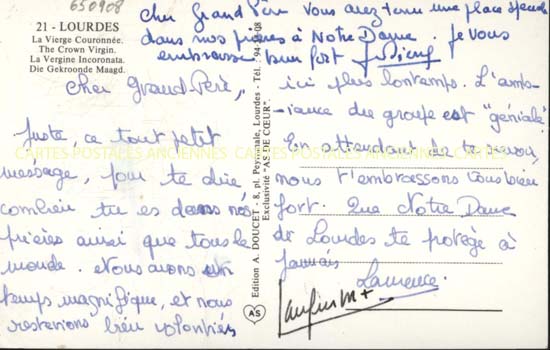 650908
21 - LOURDES
La Vierge Couronnée.
The Crown Virgin.
La Vergine Incoronata.
Die Gekroonde Maagd.
cher Grand Père vous avez tenu une place spéciale
dans nos prières à Notre Dame. Je vous
embrasse bien fort
Cher Grand-Père,
Juste, ce tout petit
message, pour te dire
combien tu es dans nos
prières ainsi que tous le
monde. Nous avons un
temps magnifique, et nous
resterions bien volontiers
Edition A. DOUCET - 8, pl. Peyramale, Lourdes - Tél. : 94-
Exclusivité "AS DE CŒUR".
AS
ici plus lontemps. L'amb-
-iance du groupe est "géniale"
En attendant de te revoir,
nous t'embrassons tous bien
fort. Que Notre Dame
de Lourdes te protège à
jamais
Laurence.
CARTES POSTALES ANCIENNES
CARTES POSTALES ANCIENNES
CARTES POSTALES ANCIENNES